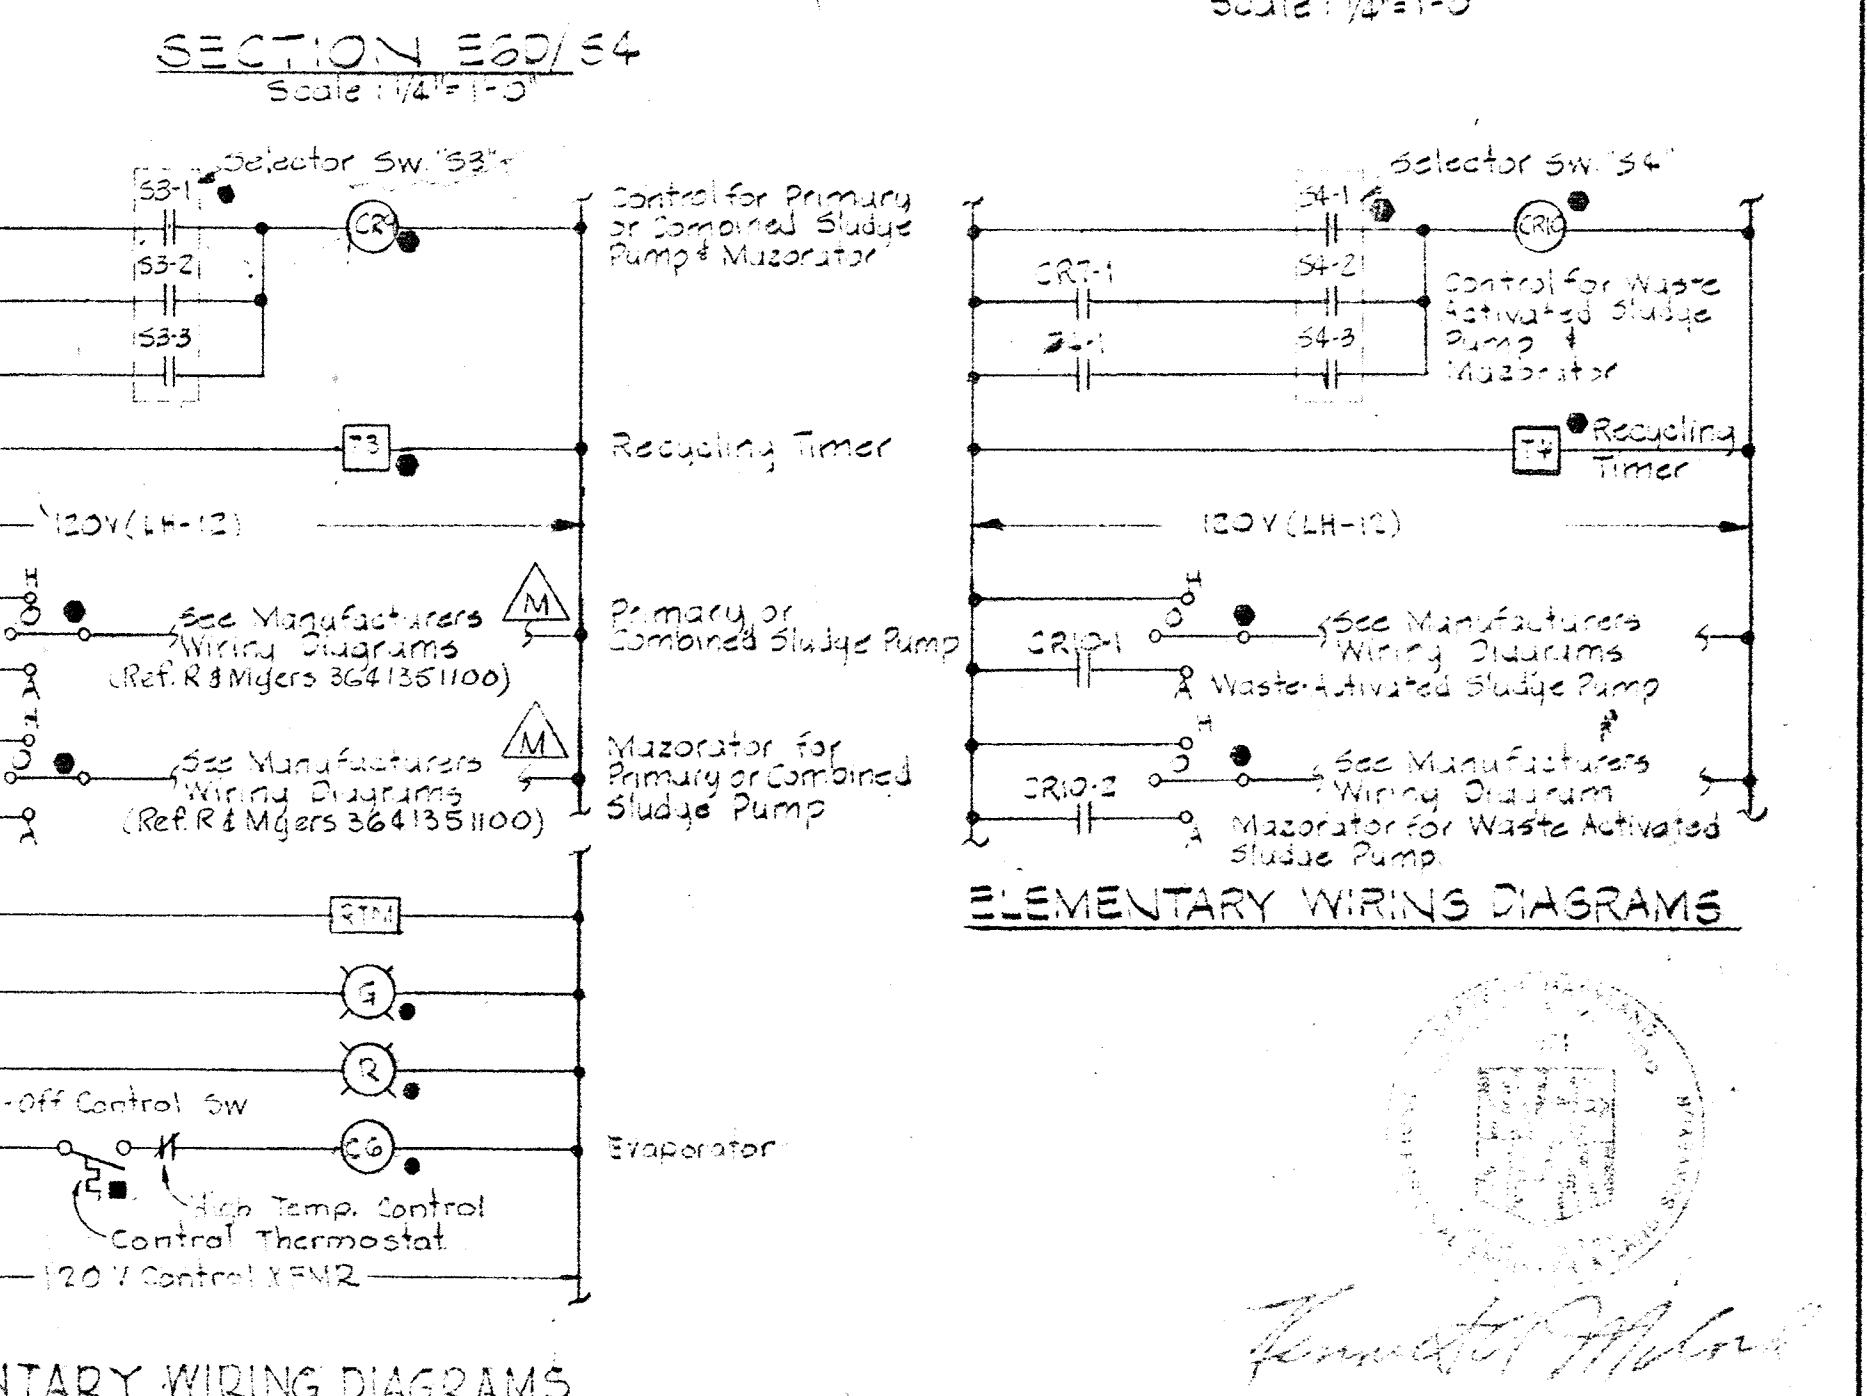 Scale : 1/4"=1'-0"
SECTION E6D/S4
Scale : 1/4"=1'-0"
Selector Sw. "S3"
S3-1
CR9
S3-2
S3-3
Control for Primary
or Combined Sludge
Pump & Mazorator
T3
Recycling Timer
120V (LH-12)
H
O
A
See Manufacturers
Wiring Diagrams
(Ref. R & Myers 3641351100)
M
Primary or
Combined Sludge Pump
H
O
A
See Manufacturers
Wiring Diagrams
(Ref. R & Myers 3641351100)
M
Mazorator for
Primary or Combined
Sludge Pump
RTM
G
R
-Off Control Sw
C6
Evaporator
High Temp. Control
Control Thermostat
120 V Control XFMR
NTARY WIRING DIAGRAMS
Selector Sw. "S4"
S4-1
CR10
CR7-1
S4-2
S4-3
Control for Waste
Activated Sludge
Pump &
Mazorator
T4
Recycling
Timer
120V (LH-12)
H
O
CR10-1
A
See Manufacturers
Wiring Diagrams
Waste Activated Sludge Pump
H
O
CR10-2
A
See Manufacturers
Wiring Diagram
Mazorator for Waste Activated
Sludge Pump
ELEMENTARY WIRING DIAGRAMS
MARYLAND